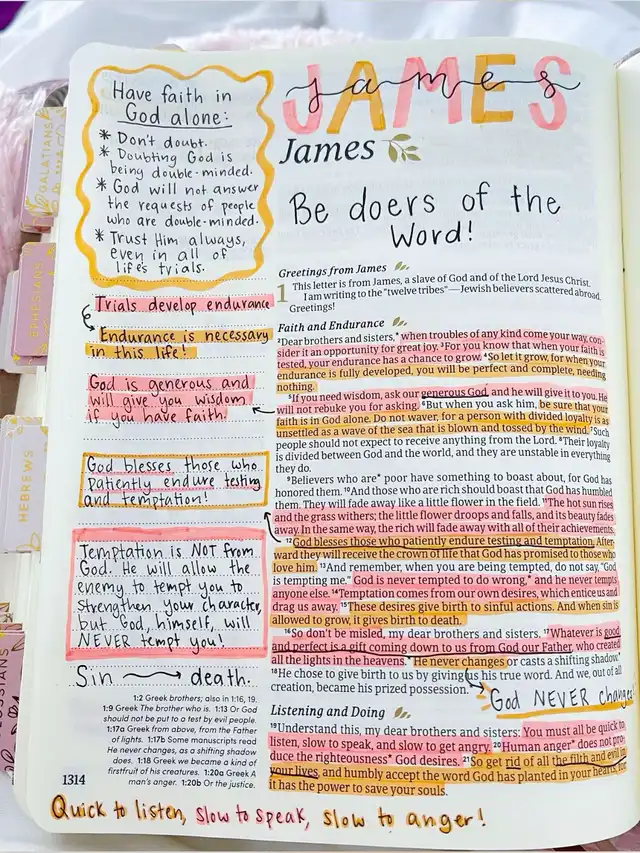 JAMES
james
James
Be doers of the
Word!
Have faith in
God alone:
* Don't doubt.
* Doubting God is
being double-minded.
* God will not answer
the requests of people
who are double-minded.
* Trust Him always,
even in all of
life's trials.
Trials develop endurance
Endurance is necessary
in this life!
God is generous and
will give you wisdom
if you have faith.
God blesses those who
patiently endure testing
and temptation!
Temptation is NOT from
God. He will allow the
enemy to tempt you to
strengthen your character,
but God, himself, will
NEVER tempt you!
Sin → death.
1:2 Greek brothers; also in 1:16, 19.
1:9 Greek The brother who is. 1:13 Or God
should not be put to a test by evil people.
1:17a Greek from above, from the Father
of lights. 1:17b Some manuscripts read
He never changes, as a shifting shadow
does. 1:18 Greek we became a kind of
firstfruit of his creatures. 1:20a Greek A
man's anger. 1:20b Or the justice.
1314
Greetings from James
1 This letter is from James, a slave of God and of the Lord Jesus Christ.
I am writing to the "twelve tribes"—Jewish believers scattered abroad.
Greetings!
Faith and Endurance
2Dear brothers and sisters,* when troubles of any kind come your way, con-
sider it an opportunity for great joy. 3For you know that when your faith is
tested, your endurance has a chance to grow. 4So let it grow, for when your
endurance is fully developed, you will be perfect and complete, needing
nothing.
5If you need wisdom, ask our generous God, and he will give it to you. He
will not rebuke you for asking. 6But when you ask him, be sure that your
faith is in God alone. Do not waver, for a person with divided loyalty is as
unsettled as a wave of the sea that is blown and tossed by the wind. 7Such
people should not expect to receive anything from the Lord. 8Their loyalty
is divided between God and the world, and they are unstable in everything
they do.
9Believers who are* poor have something to boast about, for God has
honored them. 10And those who are rich should boast that God has humbled
them. They will fade away like a little flower in the field. 11The hot sun rises
and the grass withers; the little flower droops and falls, and its beauty fades
away. In the same way, the rich will fade away with all of their achievements.
12God blesses those who patiently endure testing and temptation. After-
ward they will receive the crown of life that God has promised to those who
love him. 13And remember, when you are being tempted, do not say, "God
is tempting me." God is never tempted to do wrong,* and he never tempts
anyone else. 14Temptation comes from our own desires, which entice us and
drag us away. 15These desires give birth to sinful actions. And when sin is
allowed to grow, it gives birth to death.
16So don't be misled, my dear brothers and sisters. 17Whatever is good
and perfect is a gift coming down to us from God our Father, who created
all the lights in the heavens.* He never changes or casts a shifting shadow.*
18He chose to give birth to us by giving us his true word. And we, out of all
creation, became his prized possession.*
God NEVER changes!
Listening and Doing
19Understand this, my dear brothers and sisters: You must all be quick to
listen, slow to speak, and slow to get angry. 20Human anger* does not pro-
duce the righteousness* God desires. 21So get rid of all the filth and evil in
your lives, and humbly accept the word God has planted in your hearts, for
it has the power to save your souls.
Quick to listen, slow to speak, slow to anger!
GALATIANS
EPHESIANS
HEBREWS